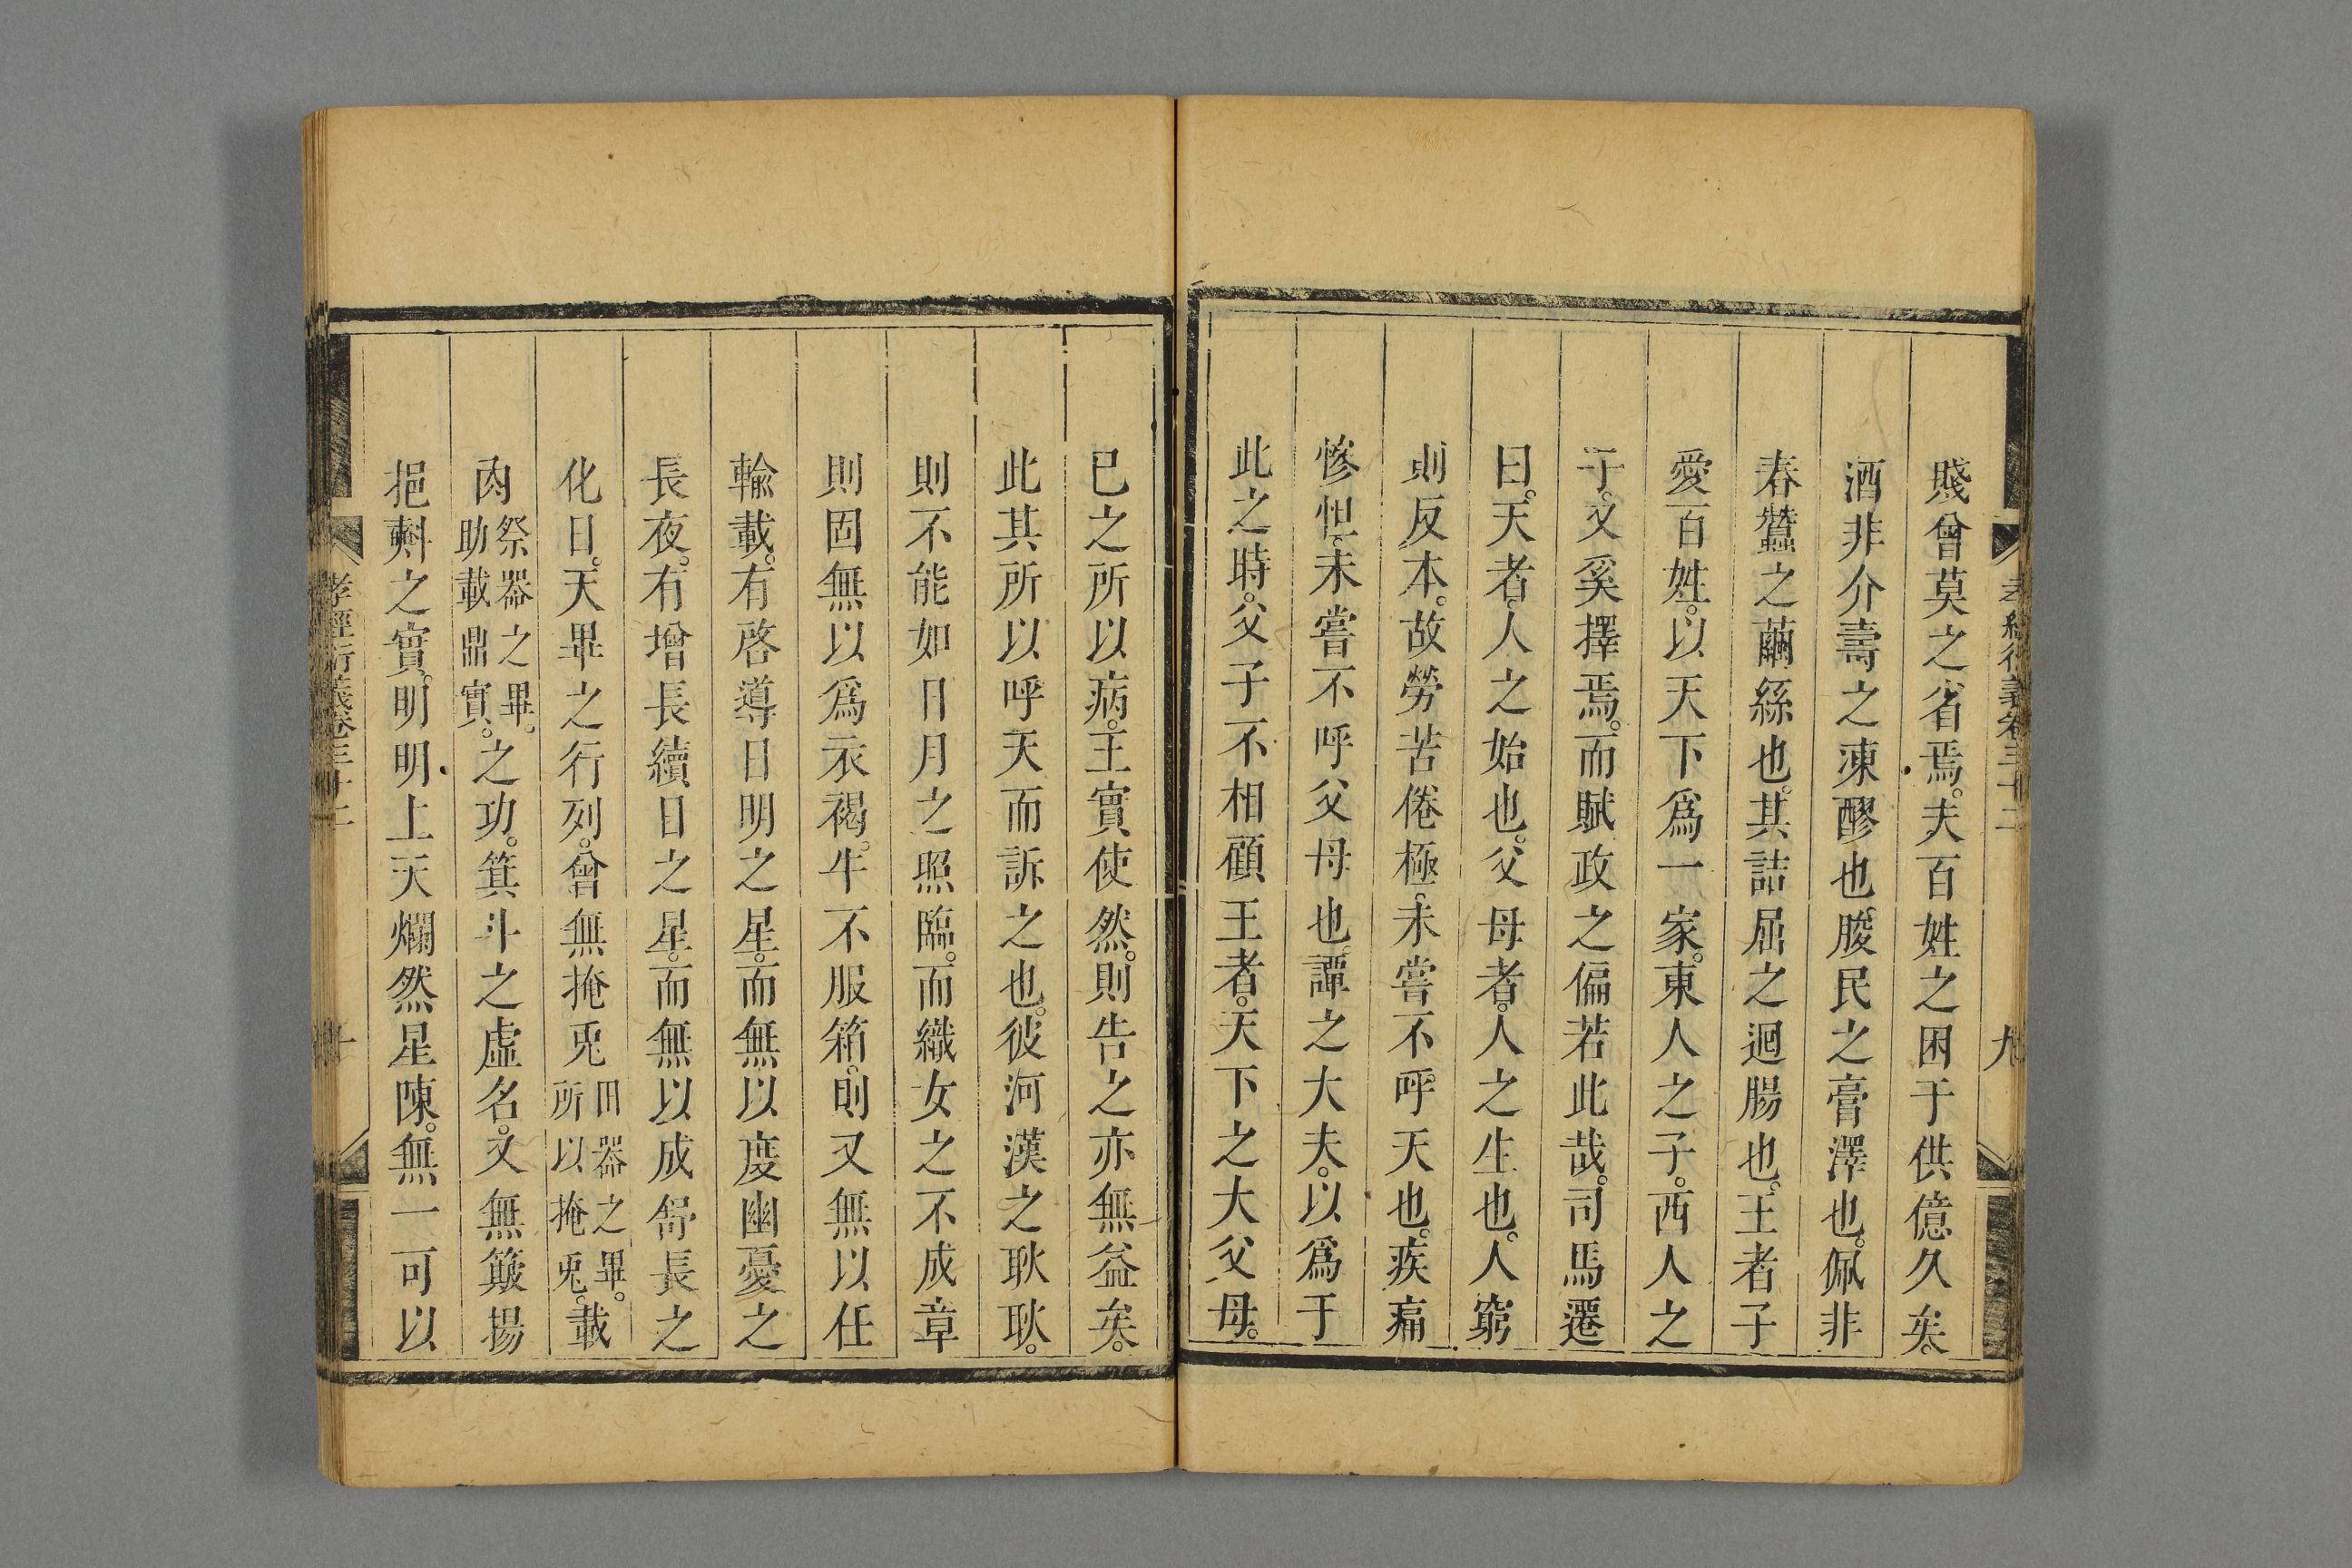 孝經衍義卷三十二
九
賤曾莫之省焉。夫百姓之困于供億久矣。
酒非介壽之凍醪也。朘民之膏澤也。佩非
春蠶之繭絲也。其詰屈之迴腸也。王者子
愛百姓。以天下爲一家。東人之子。西人之
子。又奚擇焉。而賦政之偏若此哉。司馬遷
曰。天者。人之始也。父母者。人之生也。人窮
則反本。故勞苦倦極。未嘗不呼天也。疾痛
慘怛。未嘗不呼父母也。譚之大夫。以爲于
此之時。父子不相顧。王者。天下之大父母。
已之所以病。王實使然。則告之亦無益矣。
此其所以呼天而訴之也。彼河漢之耿耿。
則不能如日月之照臨。而織女之不成章
則固無以爲衣褐。牛不服箱。則又無以任
輸載。有啓導日明之星。而無以度幽憂之
長夜。有增長續日之星。而無以成舒長之
化日。天畢之行列。曾無掩兎田器之畢。所以掩兎。載
肉祭器之畢。助載鼎實。之功。箕斗之虛名。又無簸揚
挹㪺之實。明明上天爛然星陳。無一可以
孝經衍義卷三十二
十